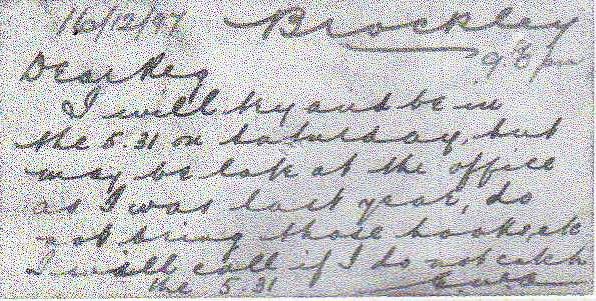 16/12/97 Brockley
9 8 pm
Dear Reg
I will try and be in
the 5.31 on Saturday, but
may be late at the office
as I was last year, do
not bring those books, etc
I will call if I do not catch
the 5.31